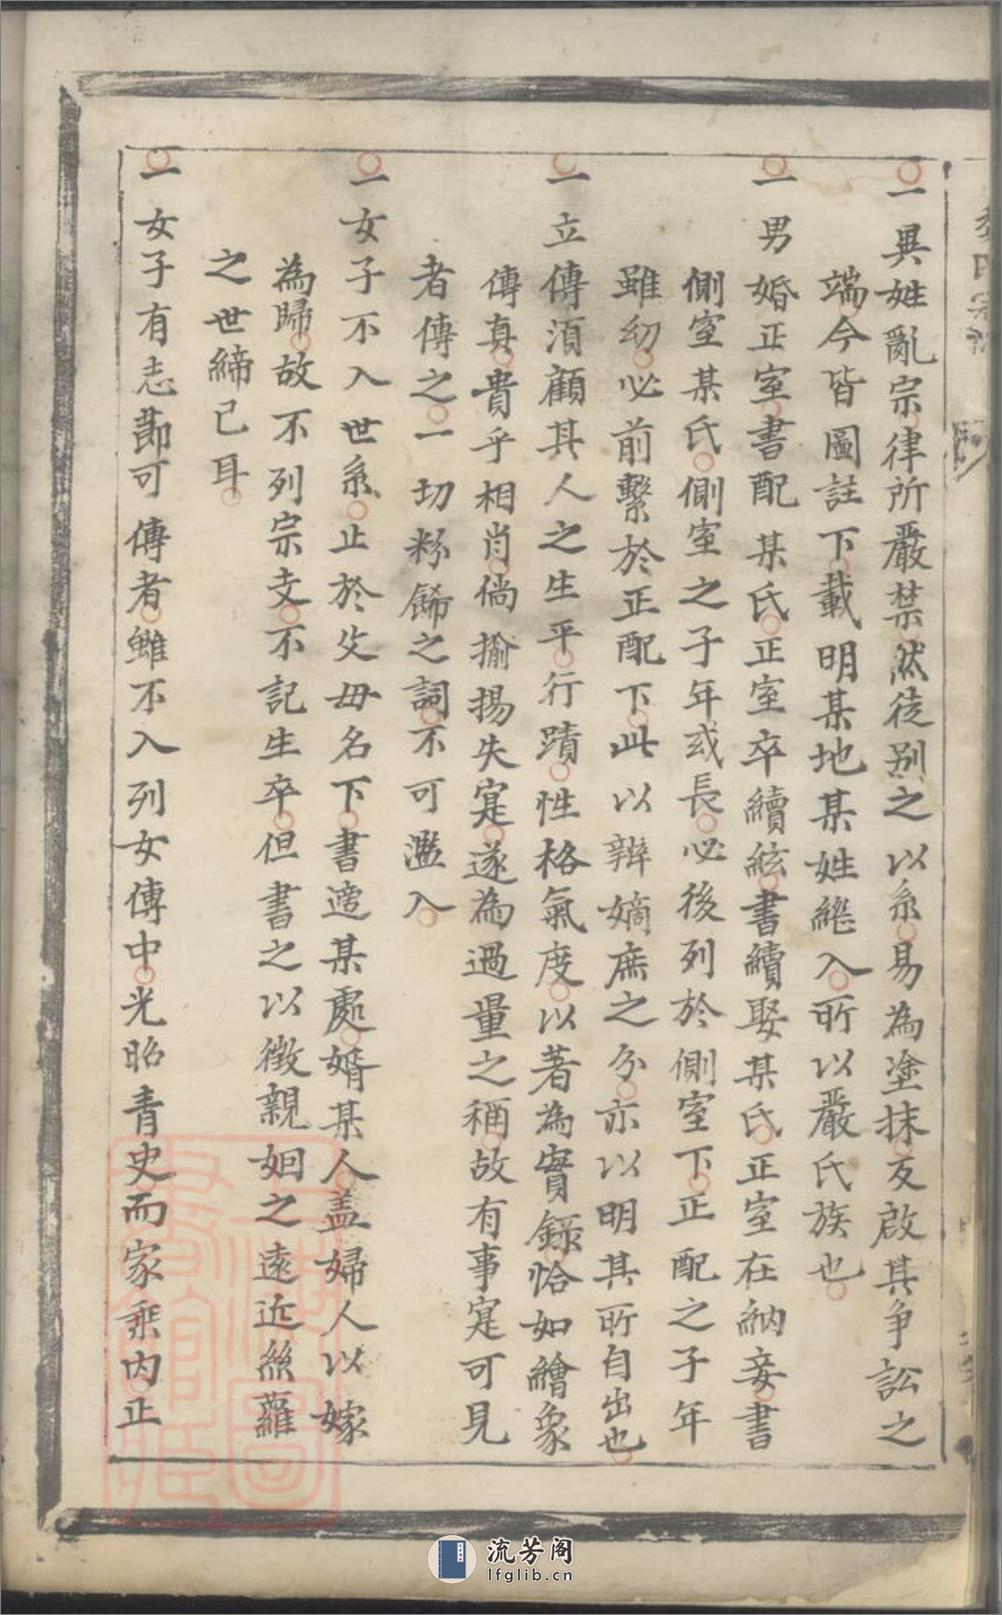 一異姓亂宗律所嚴禁然徒别之以系易為塗抹反啟其爭訟之
端今皆圖註下載明某地某姓繼入所以嚴氏族也
一男婚正室書配某氏正室卒續絃書續娶某氏正室在納妾書
側室某氏側室之子年或長必後列於側室下正配之子年
雖幼必前繫於正配下此以辨嫡庶之分亦以明其所自出也
一立傳須顧其人之生平行蹟性格氣度以著為實錄恰如繪象
傳真貴乎相肖倘揄揚失寔遂為過量之稱故有事寔可見
者傳之一切粉餙之詞不可濫入
一女子不入世系止於父毋名下書適某處婿某人盖婦人以嫁
為歸故不列宗支不記生卒但書之以徵親姻之遠近絲蘿
之世締已耳
一女子有志節可傳者雖不入列女傳中光昭青史而家乘内正
上海圖書館藏
流芳阁
lfglib.cn